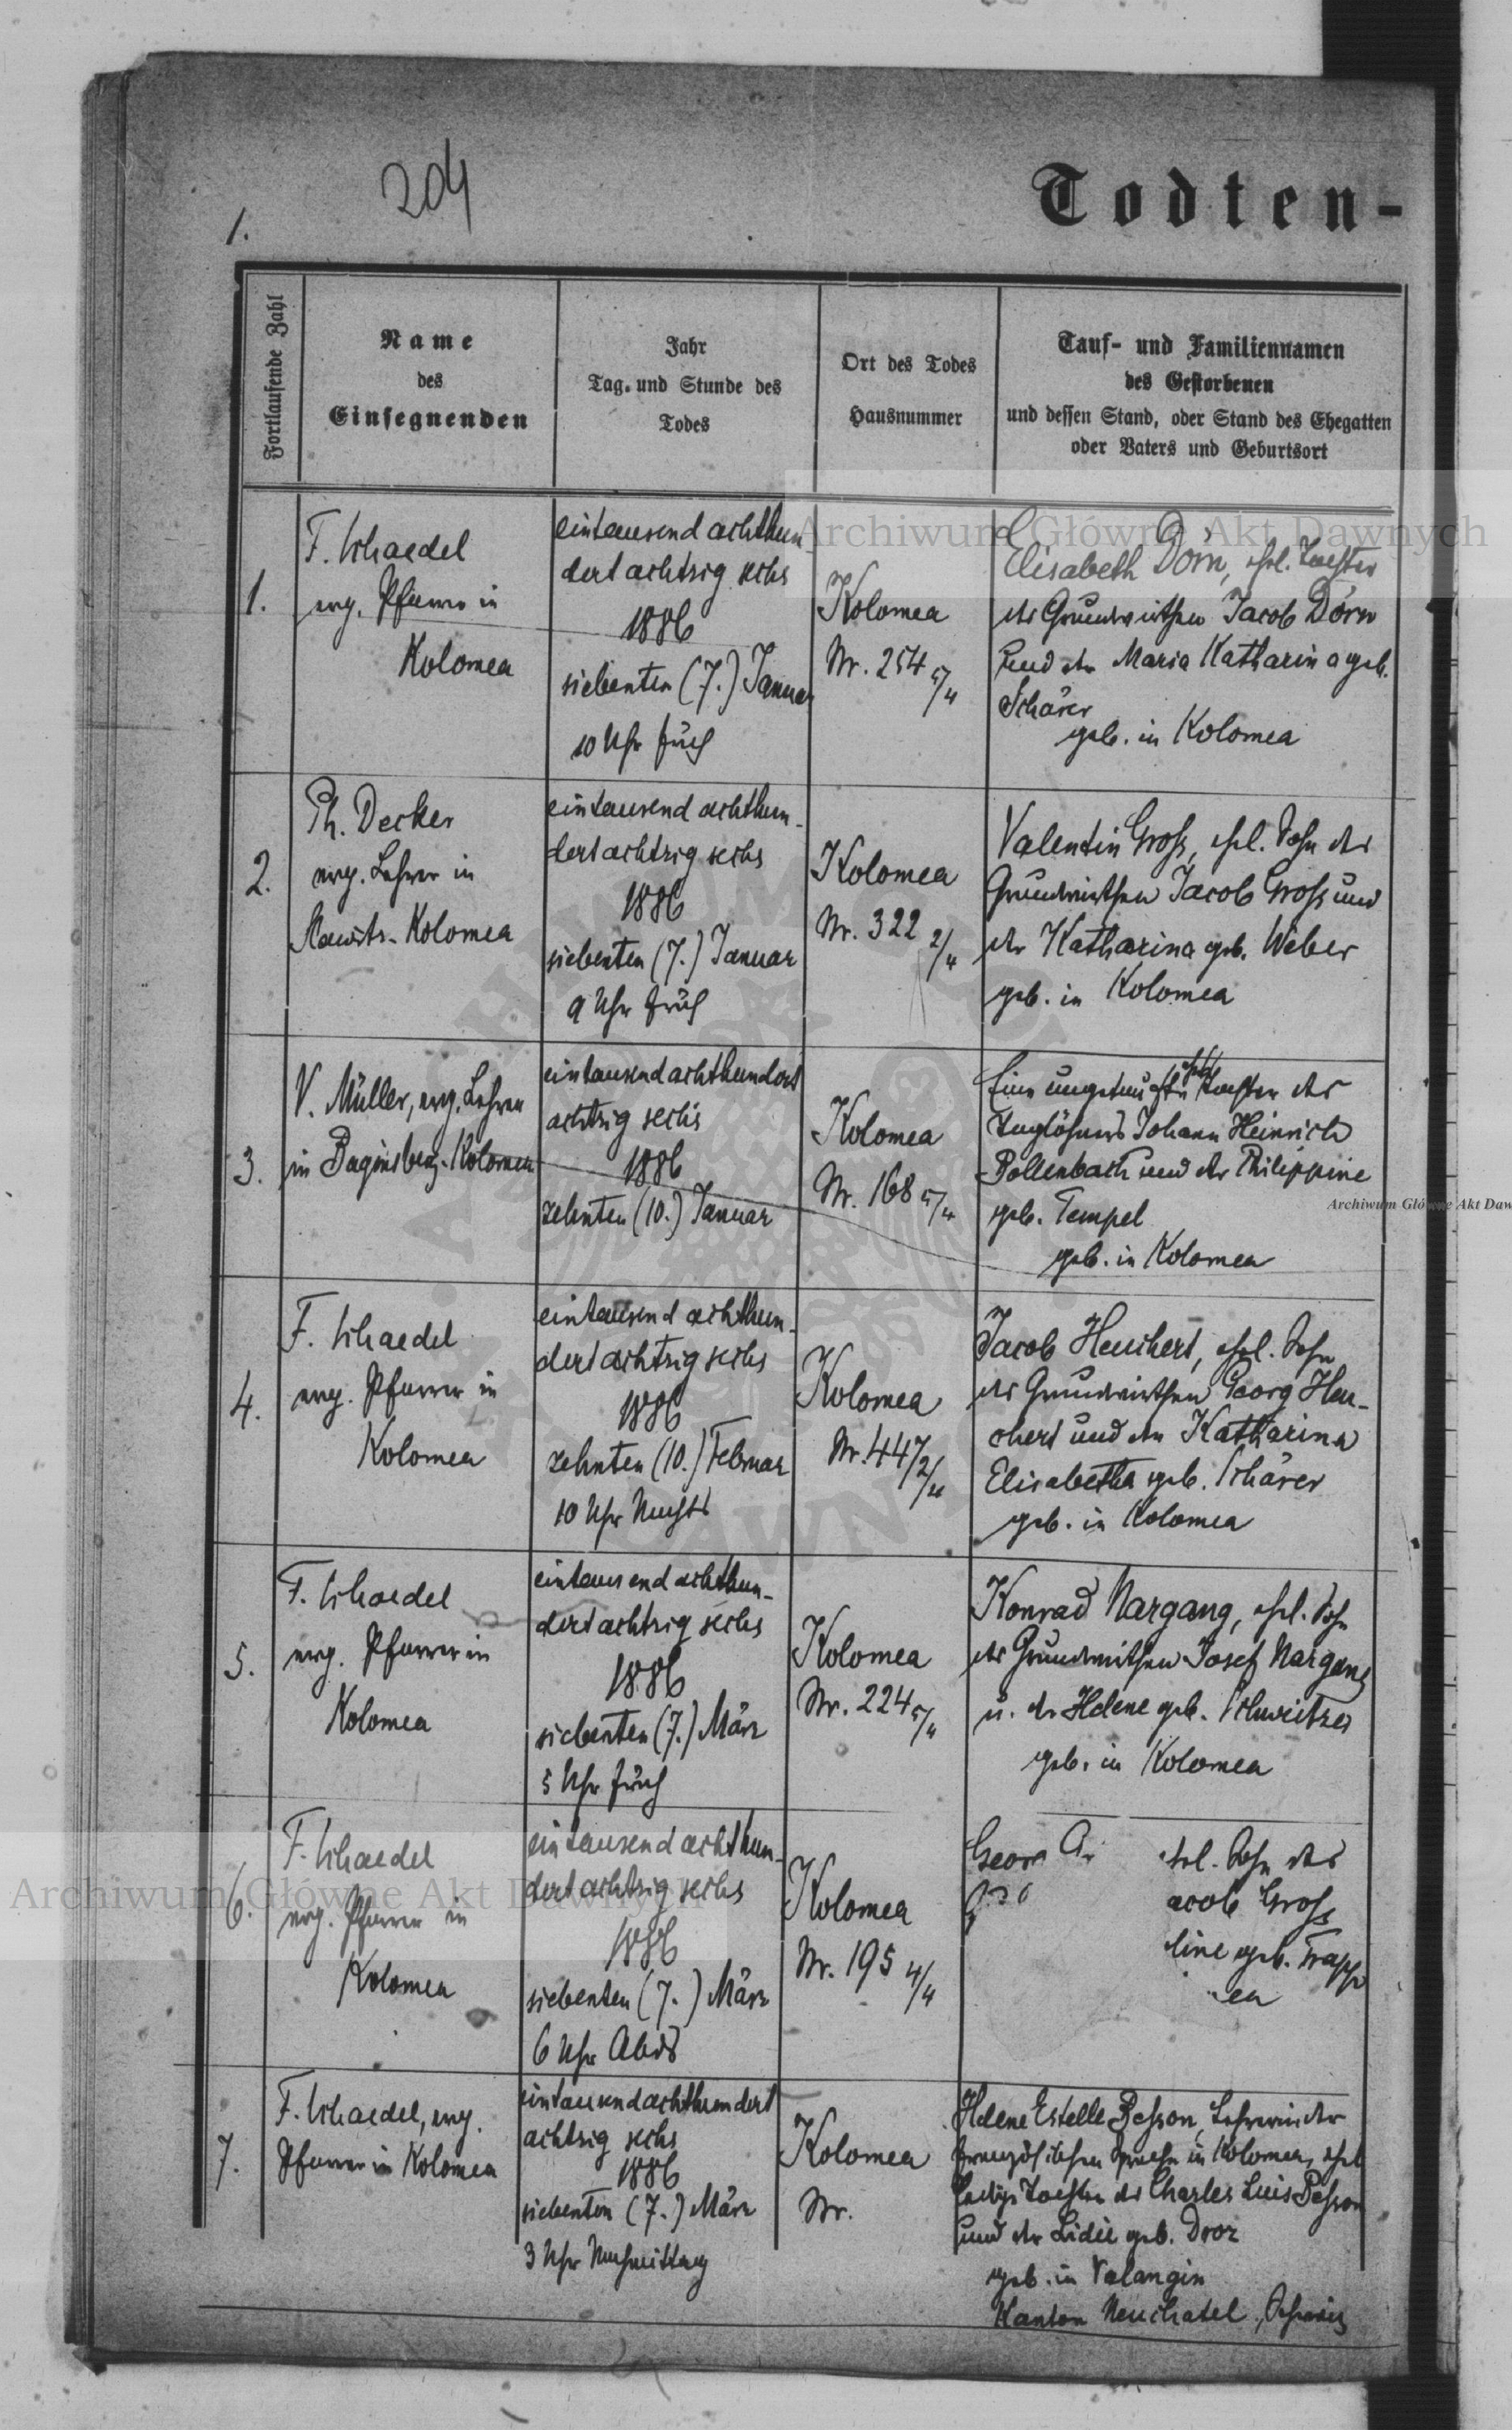 204
1.
Todten-
Fortlaufende Zahl
Name
des
Einsegnenden
Jahr
Tag, und Stunde des
Todes
Ort des Todes
Hausnummer
Tauf- und Familiennamen
des Gestorbenen
und dessen Stand, oder Stand des Ehegatten
oder Vaters und Geburtsort
1.
F. Schaedel
evg. Pfarrer in
Kolomea
eintausend achthun-
dert achtzig sechs
1886
siebenten (7.) Januar
10 Uhr früh
Kolomea
Nr. 254 5/4
Elisabeth Dörn, ehel. Tochter
des Grundwirthen Jacob Dörn
und der Maria Katharina geb.
Schärer
geb. in Kolomea
2.
Ph. Decker
evg. Lehrer in
Kolomea
eintausend achthun-
dert achtzig sechs
1886
siebenten (7.) Januar
9 Uhr früh
Kolomea
Nr. 322 2/4
Valentin Groß, ehel. Sohn des
Grundwirthen Jacob Groß und
der Katharina geb. Weber
geb. in Kolomea
3.
V. Müller, evg. Lehrer
in Baginsberg-Kolomea
eintausend achthundert
achtzig sechs
1886
zehnten (10.) Januar
Kolomea
Nr. 168 5/4
Eine ungetaufte ehel. Tochter des
Taglöhners Johann Heinrich
Bollenbach und der Philippine
geb. Tempel
geb. in Kolomea
4.
F. Schaedel
evg. Pfarrer in
Kolomea
eintausend achthun-
dert achtzig sechs
1886
zehnten (10.) Februar
10 Uhr Nachts
Kolomea
Nr. 447 2/4
Jacob Heuchert, ehel. Sohn
des Grundwirthen Georg Heu-
chert und der Katharina
Elisabetha geb. Schärer
geb. in Kolomea
5.
F. Schaedel
evg. Pfarrer in
Kolomea
eintausend achthun-
dert achtzig sechs
1886
siebenten (7.) März
5 Uhr früh
Kolomea
Nr. 224 5/4
Konrad Nargang, ehel. Sohn
des Grundwirthen Josef Nargang
u. der Helene geb. Schweitzer
geb. in Kolomea
6.
F. Schaedel
evg. Pfarrer in
Kolomea
eintausend achthun-
dert achtzig sechs
1886
siebenten (7.) März
6 Uhr Abds
Kolomea
Nr. 195 4/4
Geor ehel. Sohn des
acob Groß
line geb. Trapp
ea
7.
F. Schaedel, evg.
Pfarrer in Kolomea
eintausend achthundert
achtzig sechs
1886
siebenten (7.) März
3 Uhr Nachmittag
Kolomea
Nr.
Helene Estelle Besson, Lehrerin der
französischen Sprache in Kolomea, ehel
ledige Tochter des Charles Luis Besson
und der Lidie geb. Droz
geb. in Valangin
Kanton Neuchatel, Schweiz
Archiwum Główne Akt Dawnych
Archiwum Główne Akt Daw
Archiwum Główne Akt Dawnych